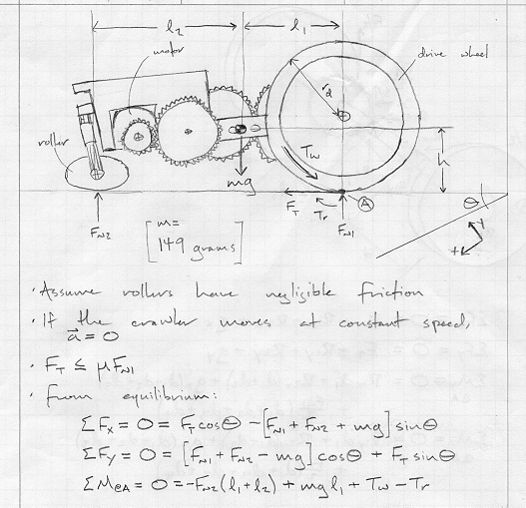 l₂ l₁
motor
drive wheel
r_d
roller
T_w
h
mg
F_T T_r A θ
F_N2 F_N1
y
x
[m = 149 grams]
· Assume rollers have negligible friction
· If the crawler moves at constant speed,
a⃗ = 0
· F_T ≤ μF_N1
· From equilibrium:
ΣF_x = 0 = F_T cosθ - [F_N1 + F_N2 + mg] sinθ
ΣF_y = 0 = [F_N1 + F_N2 - mg] cosθ + F_T sinθ
ΣM_@A = 0 = -F_N2(l₁ + l₂) + mgl₁ + T_w - T_r